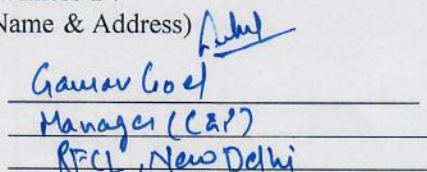 Name & Address)
Gaurav Goel
Manager (C&P)
RFCL, New Delhi